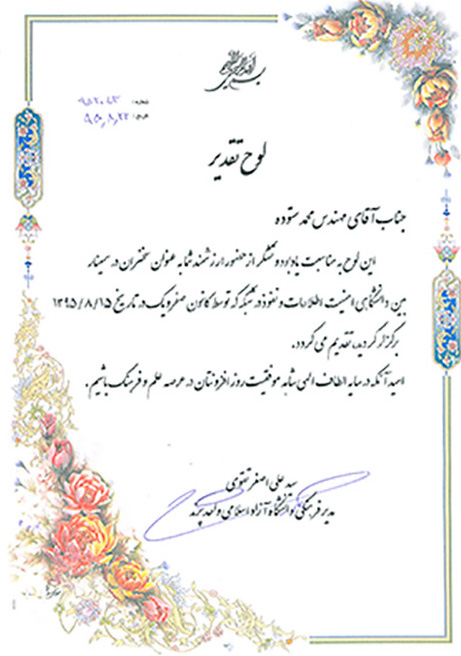 بسم الله الرحمن الرحیم
شماره:
تاریخ: ۹۵٫۸٫۲۲
لوح تقدیر
جناب آقای مهندس محمد ستوده
این لوح به مناسبت یادبود و تشکر از حضور ارزشمند شما به عنوان سخنران در سمینار
بین دانشگاهی امنیت اطلاعات و نفوذ در شبکه که توسط کانون صفر و یک در تاریخ ۱۳۹۵/۸/۱۵
برگزار گردید، تقدیم می گردد.
امید آنکه در سایه الطاف الهی شاهد موفقیت روز افزونتان در عرصه علم و فرهنگ باشیم.
سید علی اصغر تقوی
مدیر فرهنگی دانشگاه آزاد اسلامی واحد پرند